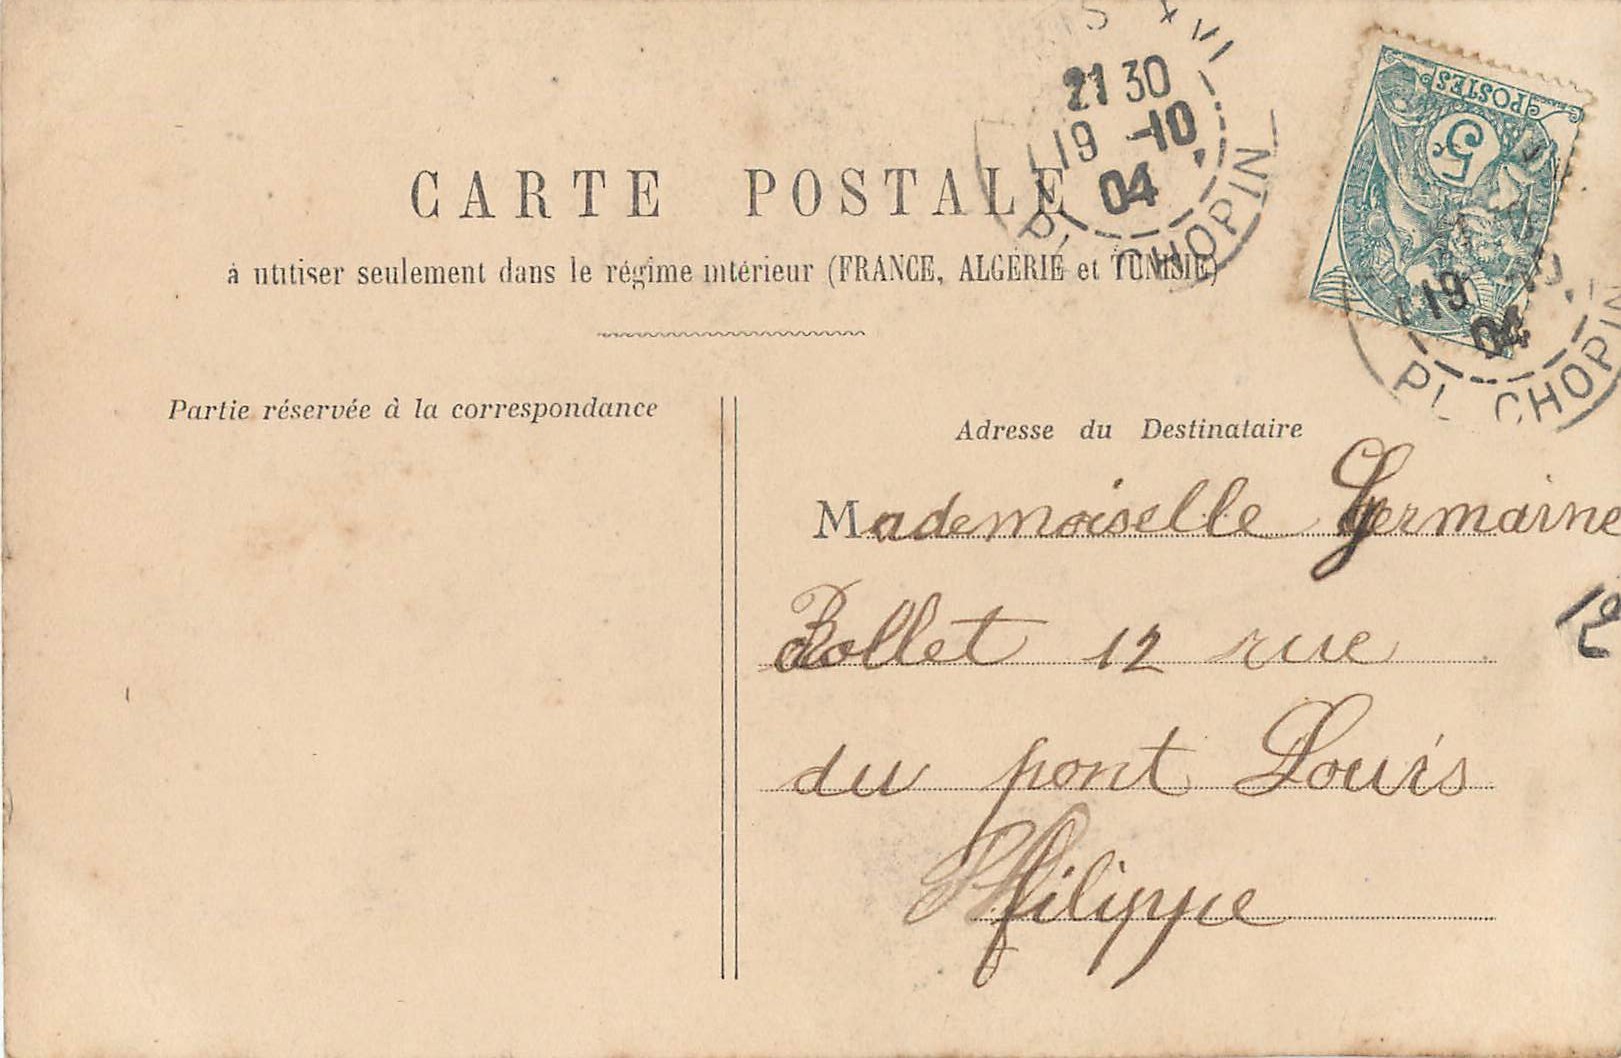 PARIS XVI
21 30
19 -10
04
PL. CHOPIN
POSTES
5c
CARTE POSTALE
à utiliser seulement dans le régime intérieur (FRANCE, ALGÉRIE et TUNISIE)
19
04
PL CHOPIN
Partie réservée à la correspondance
Adresse du Destinataire
Mademoiselle Germaine
Rollet 12 rue
12
du pont Louis
Philippe